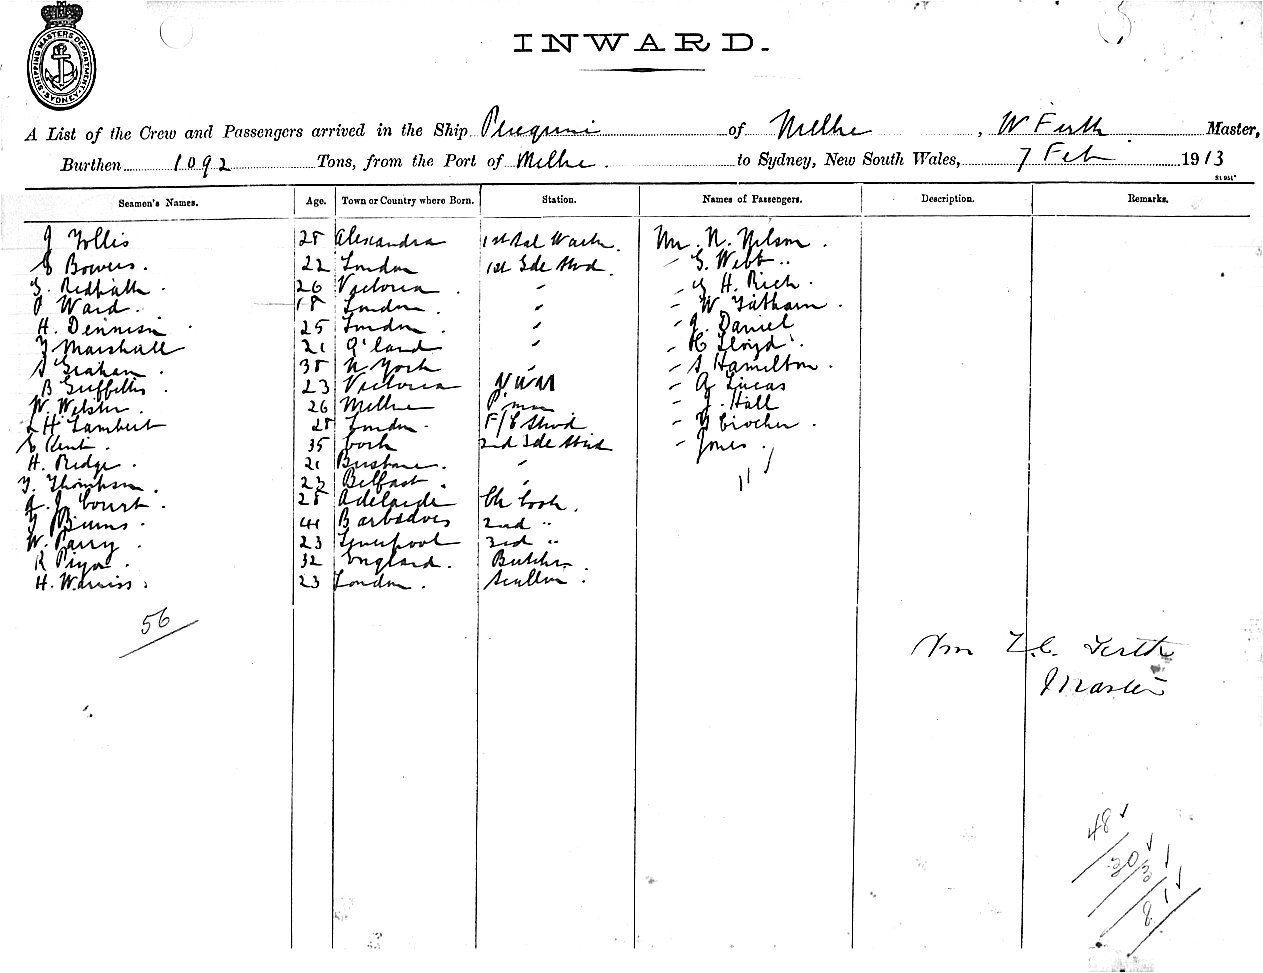 SHIPPING MASTERS DEPARTMENT SYDNEY
INWARD.
A List of the Crew and Passengers arrived in the Ship of Melbe, W Firth Master,
Burthen 1092 Tons, from the Port of Melbe. to Sydney, New South Wales, 7 Feb 1913
Seamen's Names. Age. Town or Country where Born. Station. Names of Passengers. Description. Remarks.
J Follis 28 Alexandra 1st Sal Mr. N. Nilson.
E Bowers. 22 London 1st Sde Stwd. - G. Webb..
G. Redpath. 26 Victoria. " - G H. Rich.
P Ward. 18 London. " - W. Latham.
H. Dennison 25 London. " - J. Daniel
Marshall 21 Q'land " - H Lloyd.
S Graham. 38 N York " - S Hamilton.
B Griffiths. 23 Victoria - A Lucas
W. Webster. 26 Melbe P'man - J. Hall
L H Lambert 28 London. F/C Stwd - Crocker.
E Kent. 35 Cork 2nd Sde Stwd - Jones.
H. Ridge. 21 Brisbane. " 11
T. Thompson. 23 Belfast. "
A. J Court. 28 Adelaide Ch Cook.
Burns. 41 Barbadoes 2nd "
W. Parry. 23 Liverpool 3rd "
R Pryor. 32 England. Butcher.
H. Warriss. 23 London. Scullion.
56
Wm Firth
Master
48
30/3
81